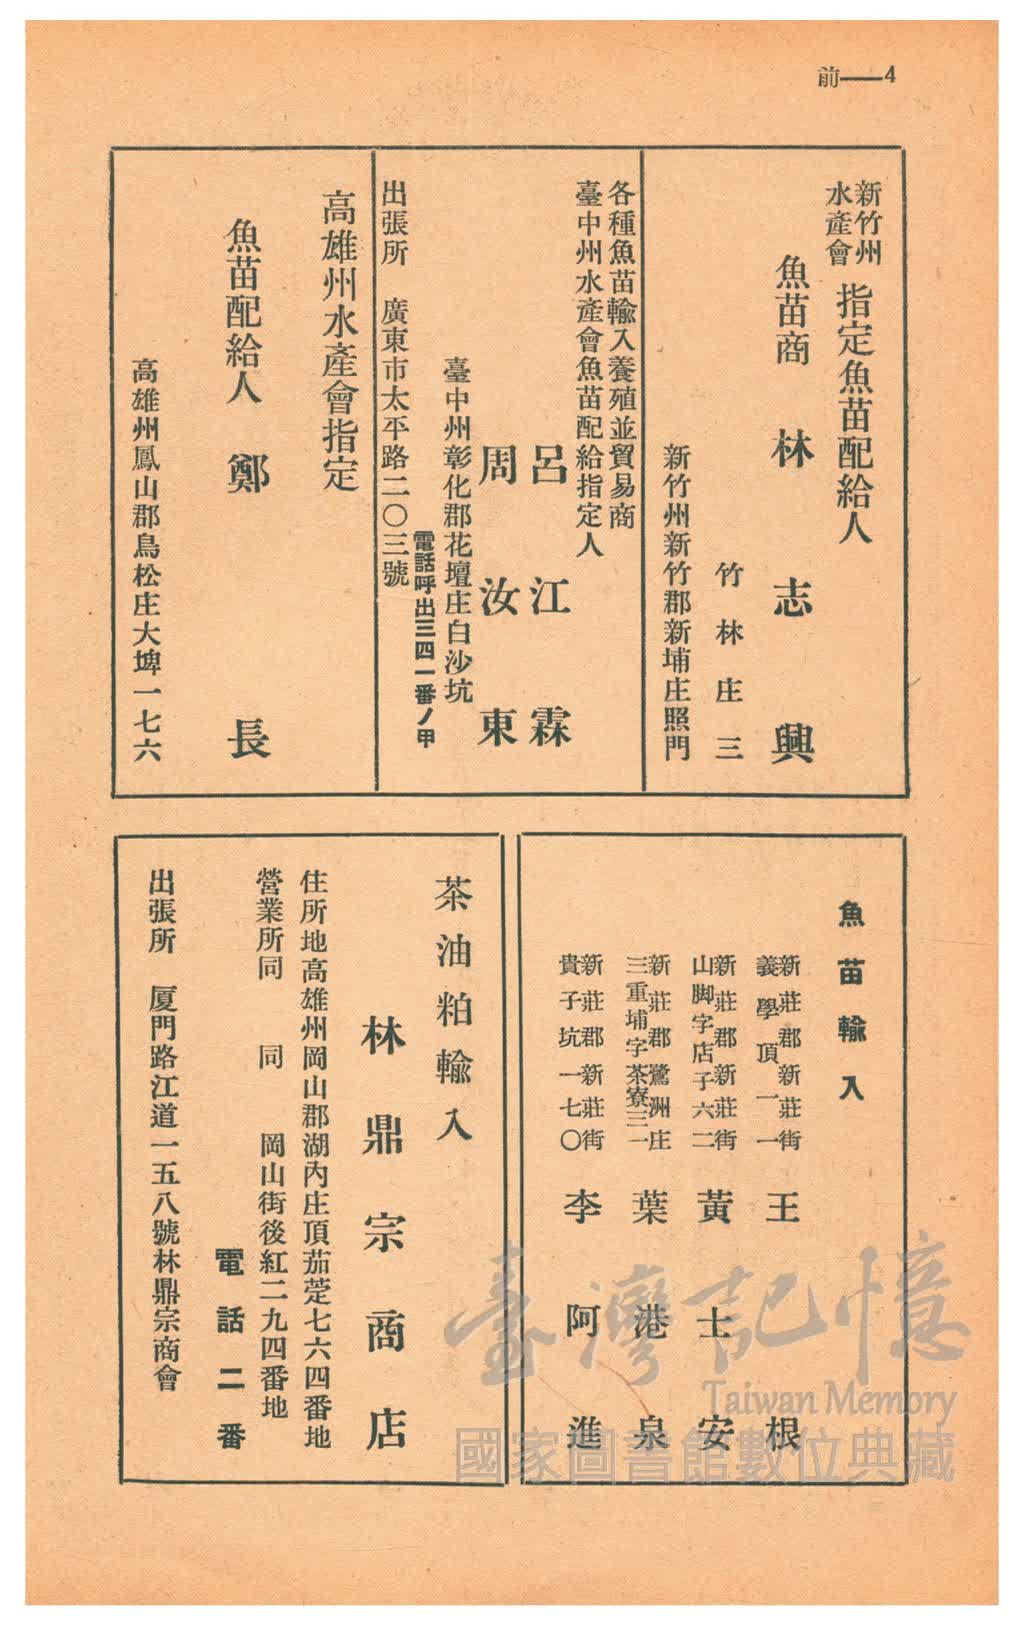 前——4
新竹州
水產會
指定魚苗配給人
魚苗商 林志興
竹林庄三
新竹州新竹郡新埔庄照門
各種魚苗輸入養殖並貿易商
臺中州水產會魚苗配給指定人
呂江霖
周汝東
臺中州彰化郡花壇庄白沙坑
電話呼出三四一番ノ甲
出張所 廣東市太平路二〇三號
高雄州水產會指定
魚苗配給人 鄭長
高雄州鳳山郡鳥松庄大埤一七六
魚苗輸入
新莊郡新莊街
義學頂一一
王根
新莊郡新莊街
山脚字店子六二
黃士安
新莊郡鷺洲庄
三重埔字茶寮三一
葉港泉
新莊郡新莊街
貴子坑一七〇
李阿進
茶油粕輸入
林鼎宗商店
住所地高雄州岡山郡湖內庄頂茄萣七六四番地
營業所同 同 岡山街後紅二九四番地
電話二番
出張所 厦門路江道一五八號林鼎宗商會
臺灣記憶
Taiwan Memory
國家圖書館數位典藏